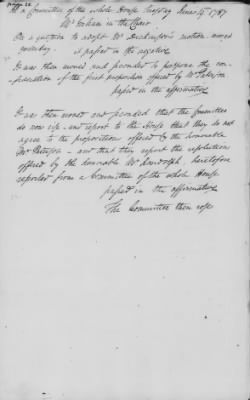 In a Committee of the whole House Tuesday June 19. 1787.
Mr Gorham in the Chair
On a question to adopt Mr Dickinson's motion moved
yesterday. it passed in the negative
It was then moved and seconded to postpone the con-
sideration of the first proposition offered by Mr Paterson
passed in the affirmative
It was then moved and seconded that the Committee
do now rise - and report to the House that they do not
agree to the propositions offered by the honorable
Mr Paterson - and that they report the resolutions
offered by the honorable Mr Randolph, heretofore
reported from a Committee of the whole House
passed in the affirmative
The Committee then rose